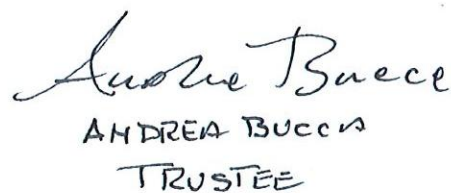 Andrea Bucca
ANDREA BUCCA
TRUSTEE